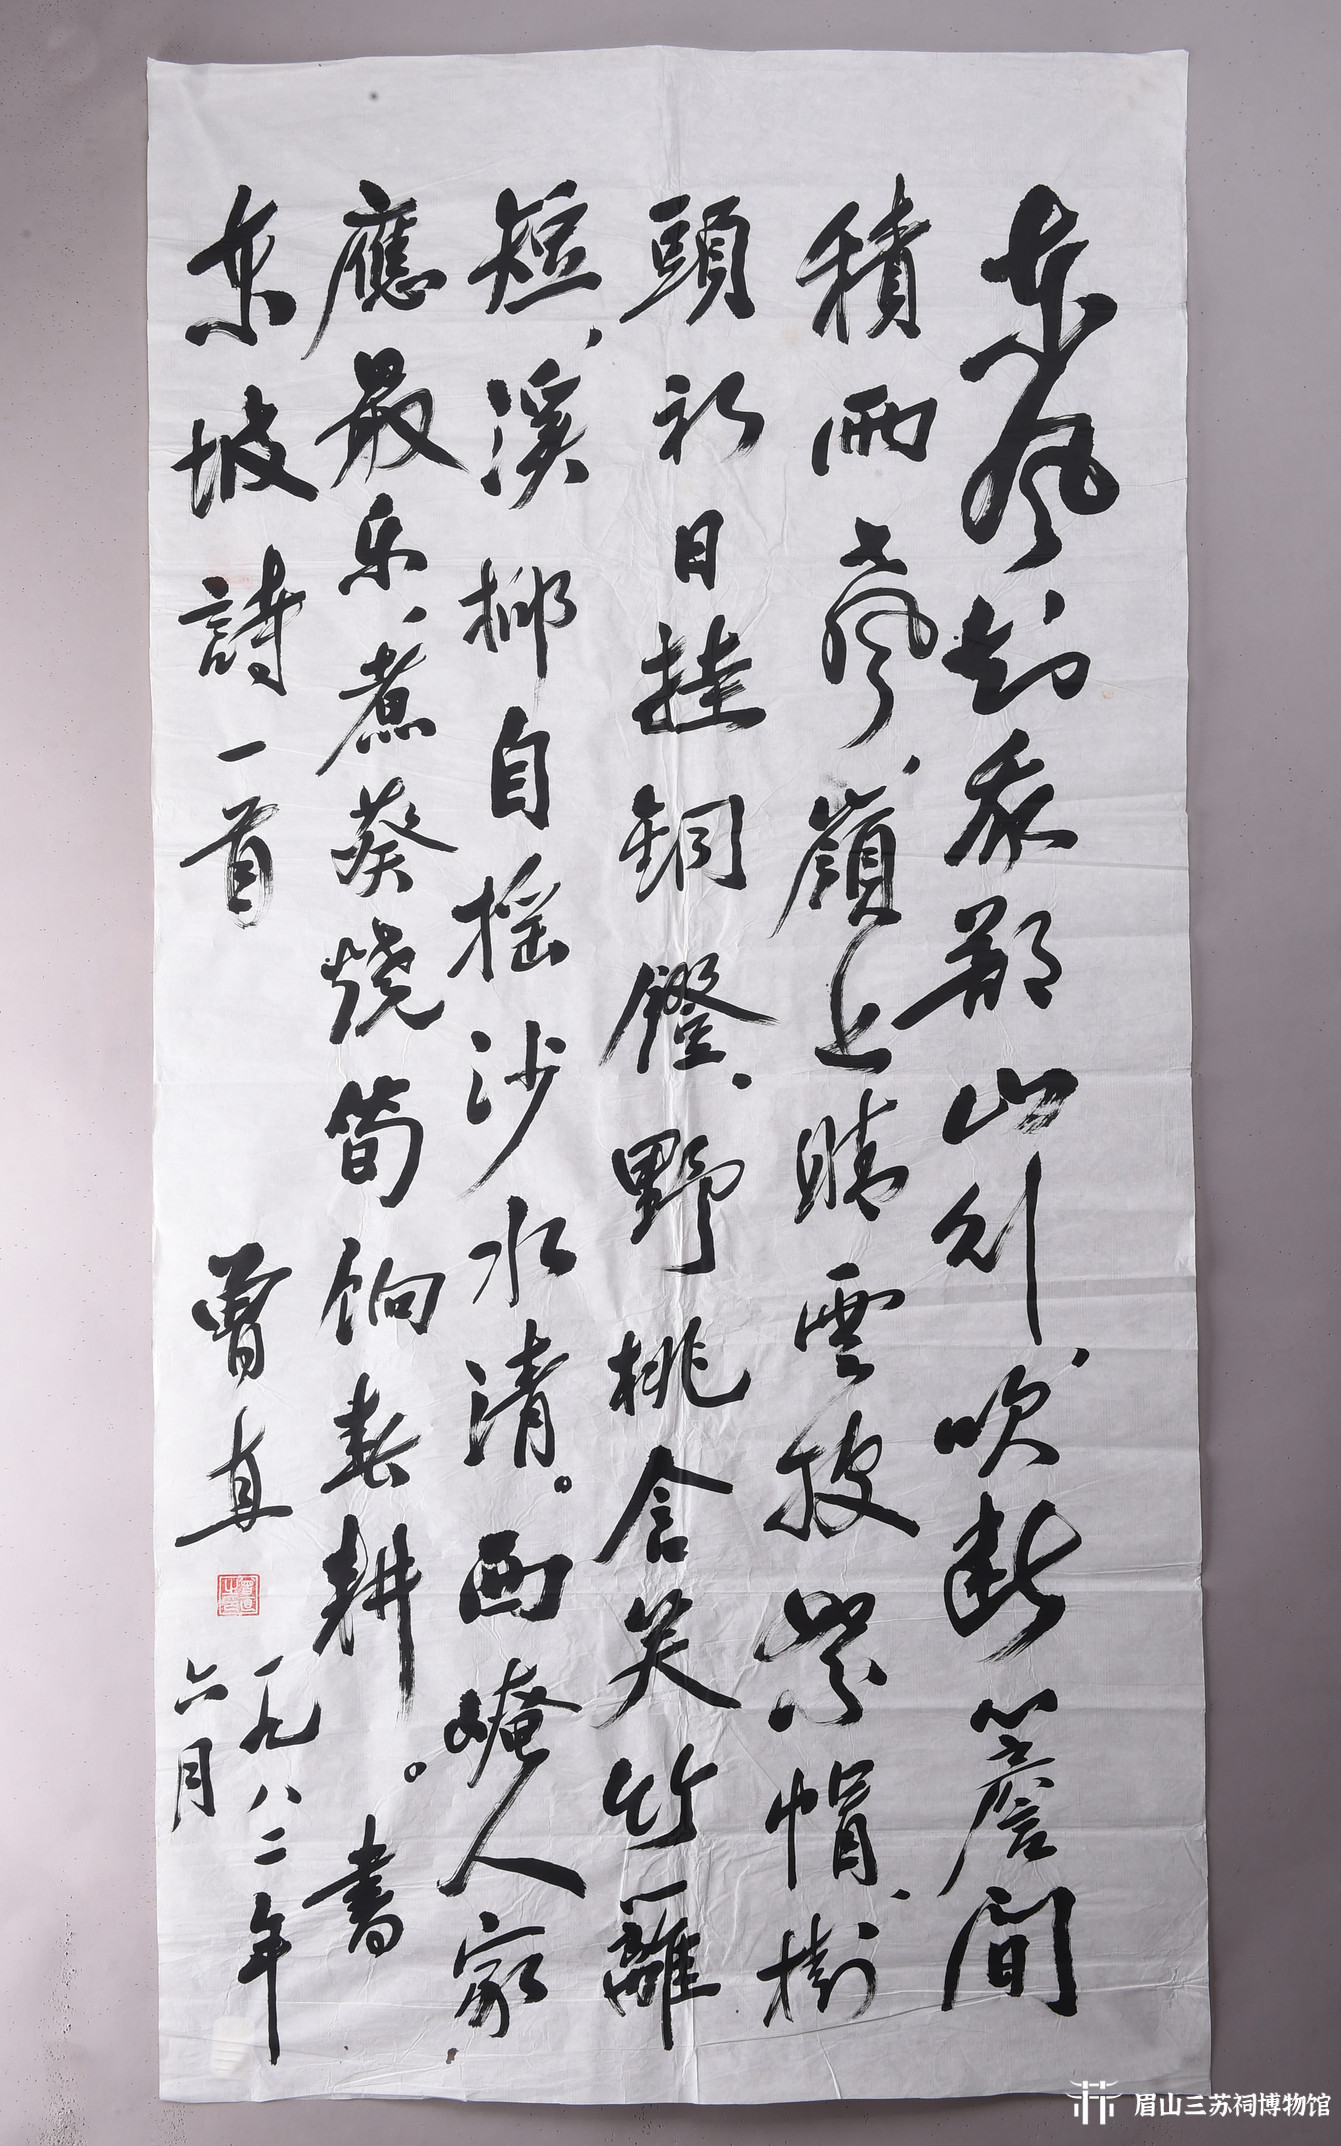 東風知我欲山行、吹斷簷間
積雨聲、嶺上晴雲披絮帽、樹
頭初日挂銅鐙、野桃含笑竹籬
短、溪柳自摇沙水清。西崦人家
應最乐、煮葵烧筍饷春耕。書
东坡詩一首 曾直
一九八二年
六月
眉山三苏祠博物馆